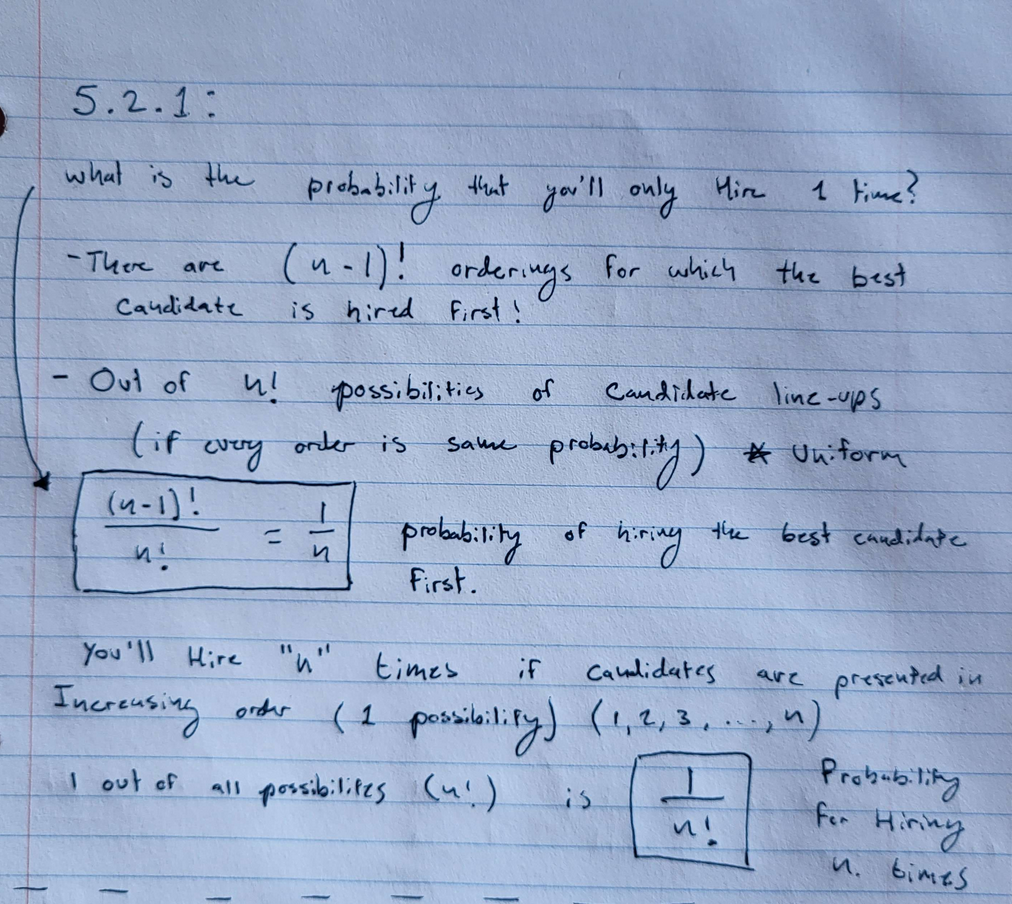 5.2.1:
What is the probability that you'll only Hire 1 time?
- There are (n-1)! orderings for which the best
candidate is hired first!
- Out of n! possibilities of candidate line-ups
(if every order is same probability) * Uniform
(n-1)!/n! = 1/n probability of hiring the best candidate
first.
You'll Hire "n" times if candidates are presented in
Increasing order (1 possibility) (1, 2, 3, ..., n)
1 out of all possibilites (n!) is 1/n! Probability
for Hiring
n. times